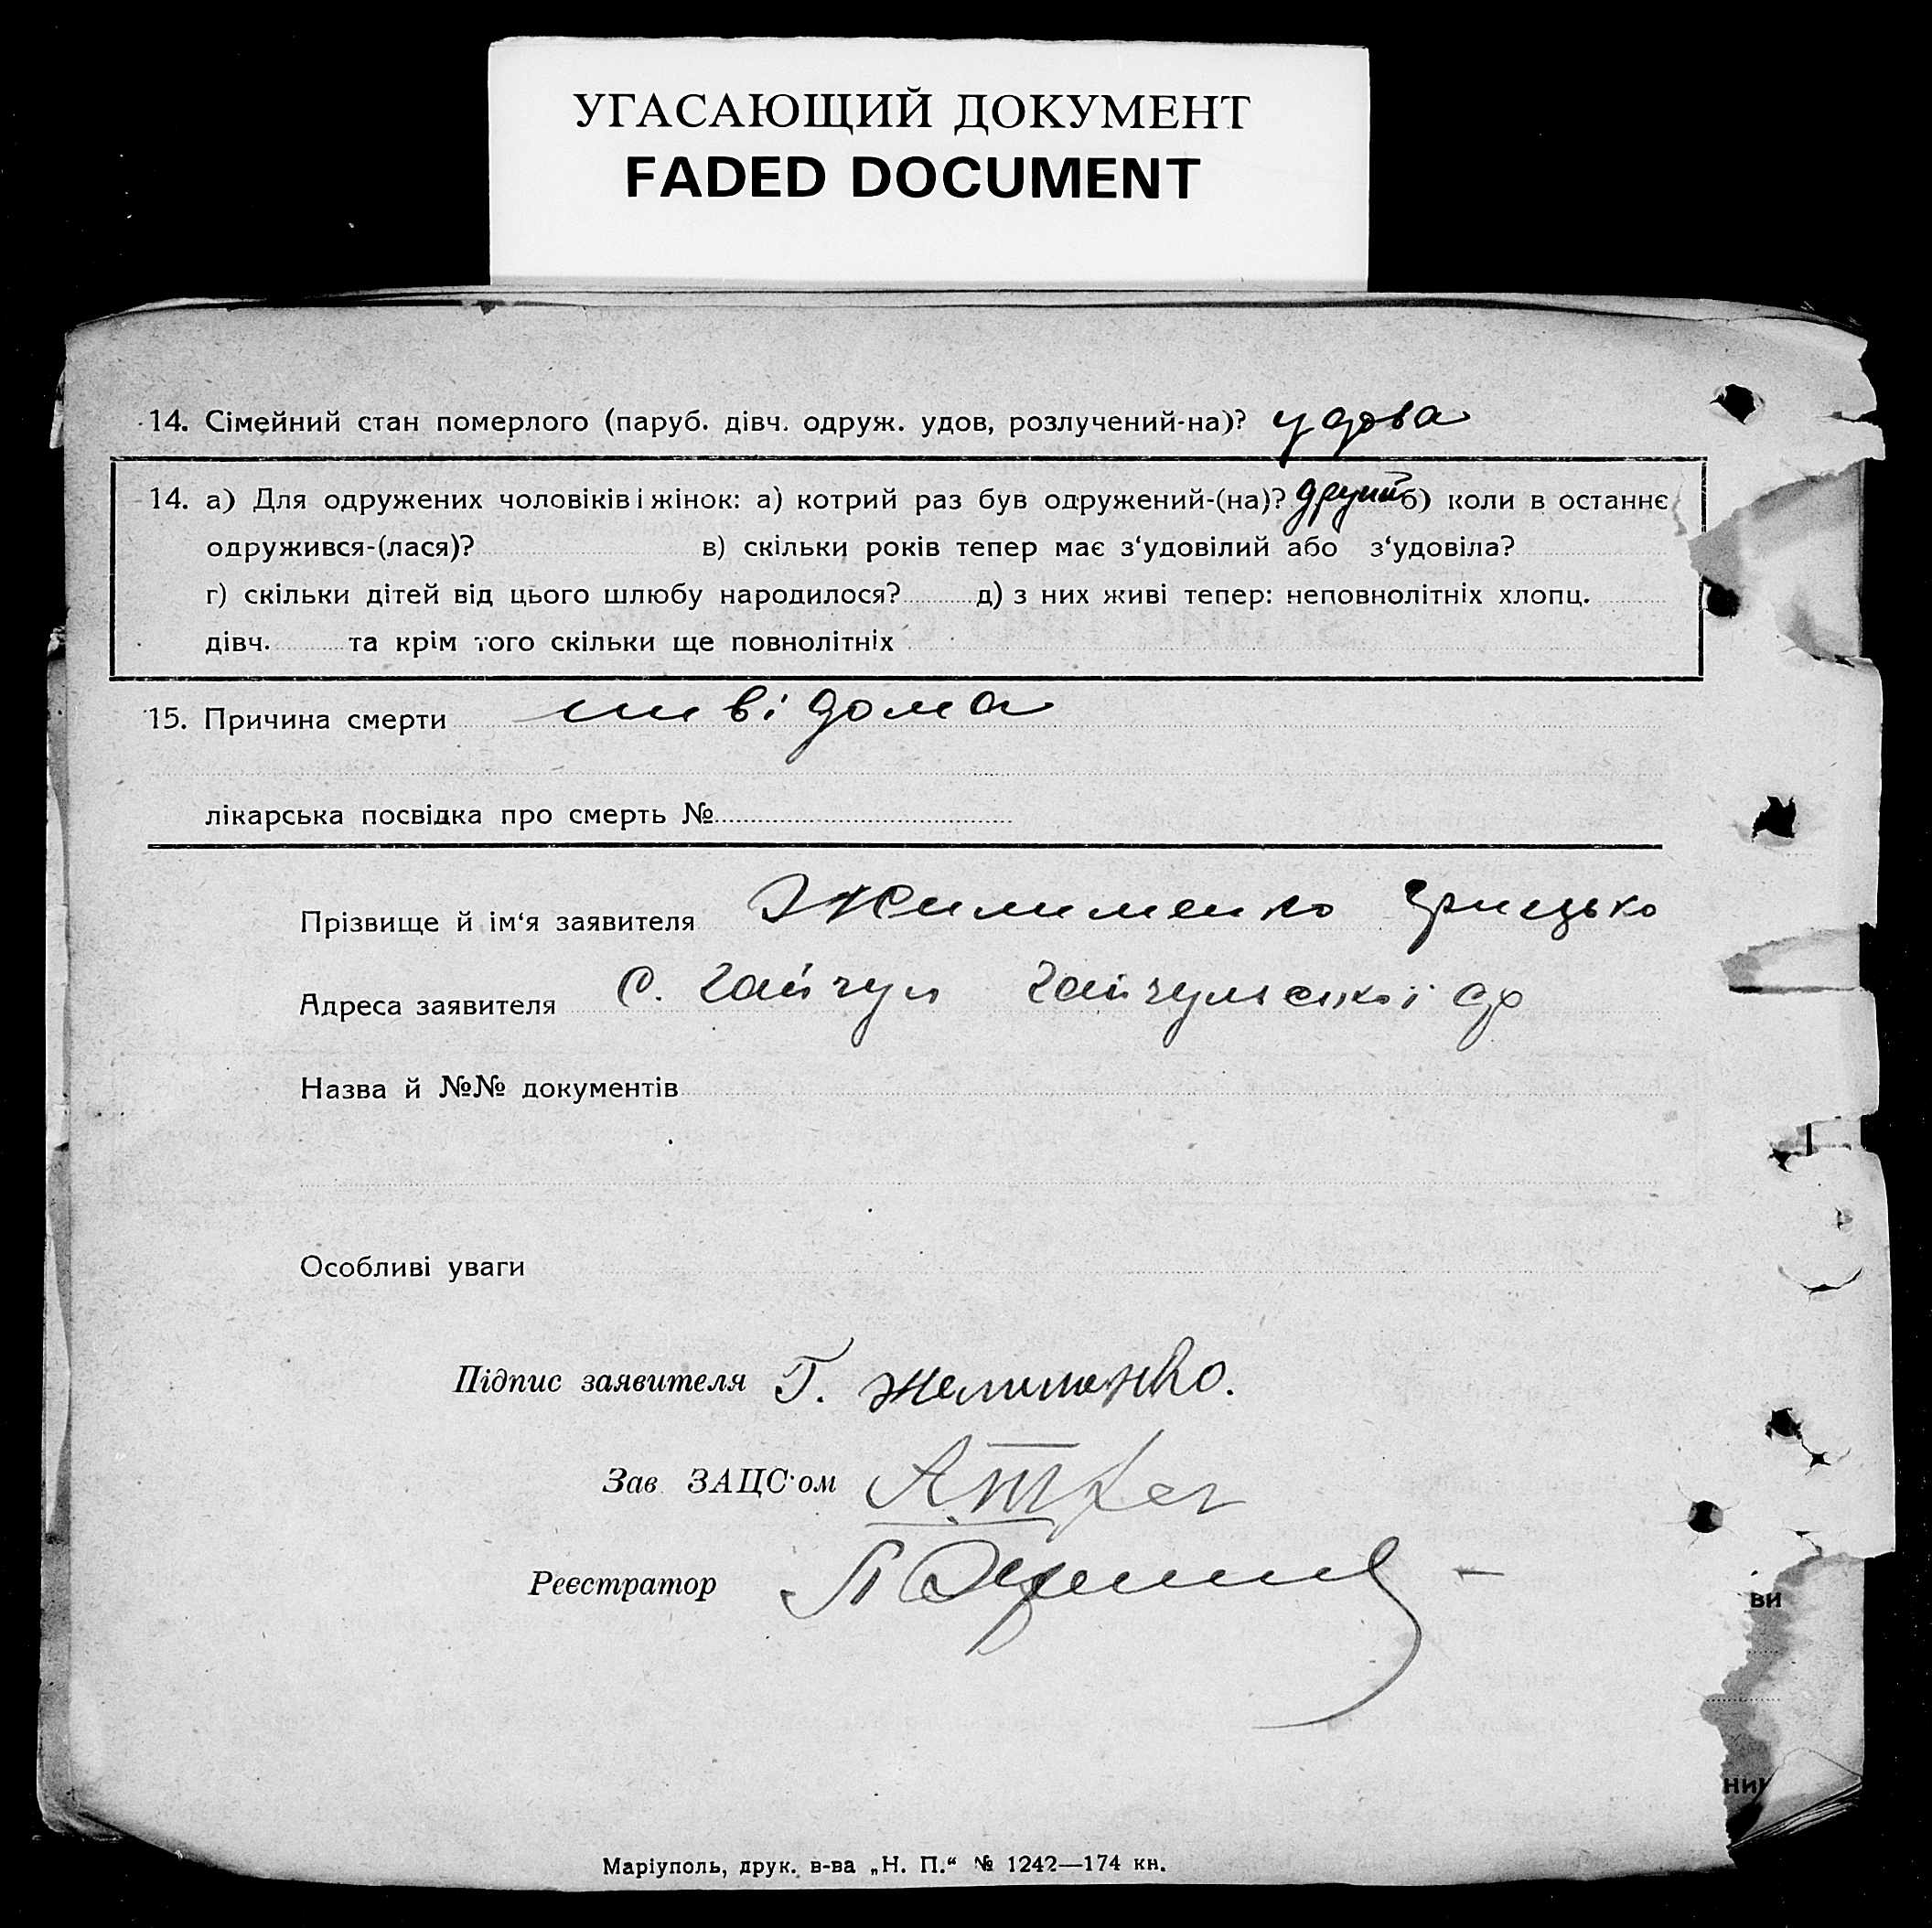 УГАСАЮЩИЙ ДОКУМЕНТ
FADED DOCUMENT
14. Сімейний стан померлого (паруб. дівч. одруж. удов, розлучений-на)? удова
14. а) Для одружених чоловіків і жінок: а) котрий раз був одружений-(на)? другий б) коли в останнє
одружився-(лася)? в) скільки років тепер має з‘удовілий або з‘удовіла?
г) скільки дітей від цього шлюбу народилося? д) з них живі тепер: неповнолітніх хлопц.
дівч. та крім того скільки ще повнолітніх
15. Причина смерти невідома
лікарська посвідка про смерть №
Прізвище й ім‘я заявителя Жилименко Грицько
Адреса заявителя С. Гайчул Гайчульської с/р
Назва й №№ документів
Особливі уваги
Підпис заявителя Г. Желименко.
Зав ЗАЦС‘ом
Реєстратор
ви
ни
Маріуполь, друк. в-ва „Н. П.“ № 1242—174 кн.